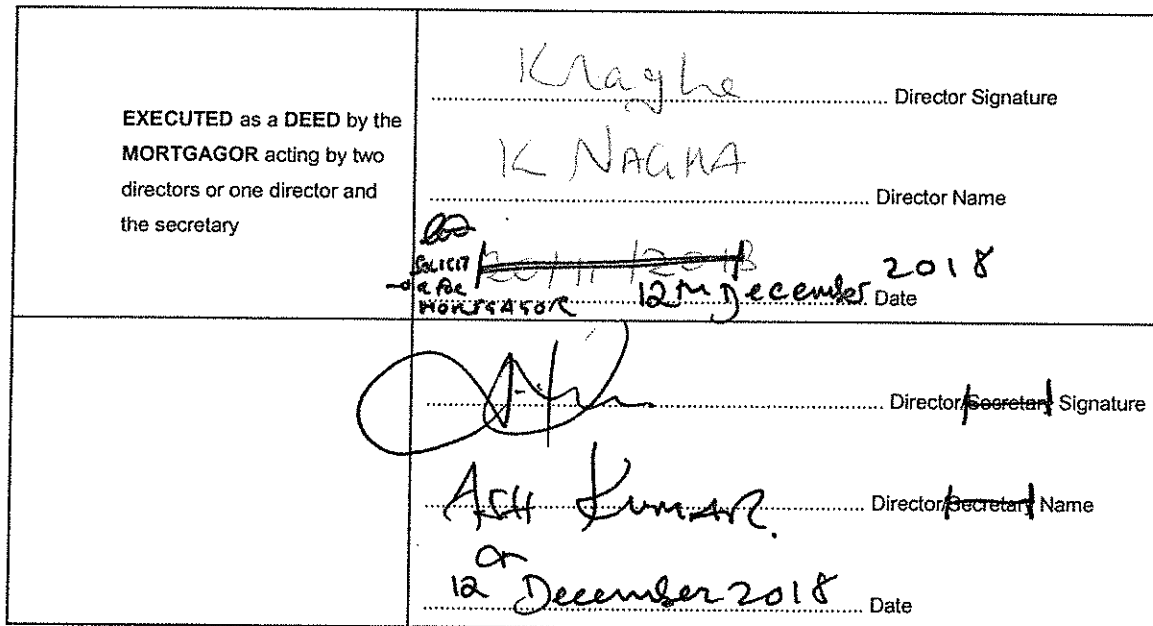 EXECUTED as a DEED by the
MORTGAGOR acting by two
directors or one director and
the secretary
Director Signature
K NAGHA
Director Name
20/11/2018
SOLICIT
FOR
MORTGAGOR
12th December 2018 Date
Director/Secretary Signature
ASH KUMAR.
Director/Secretary Name
12th December 2018
Date